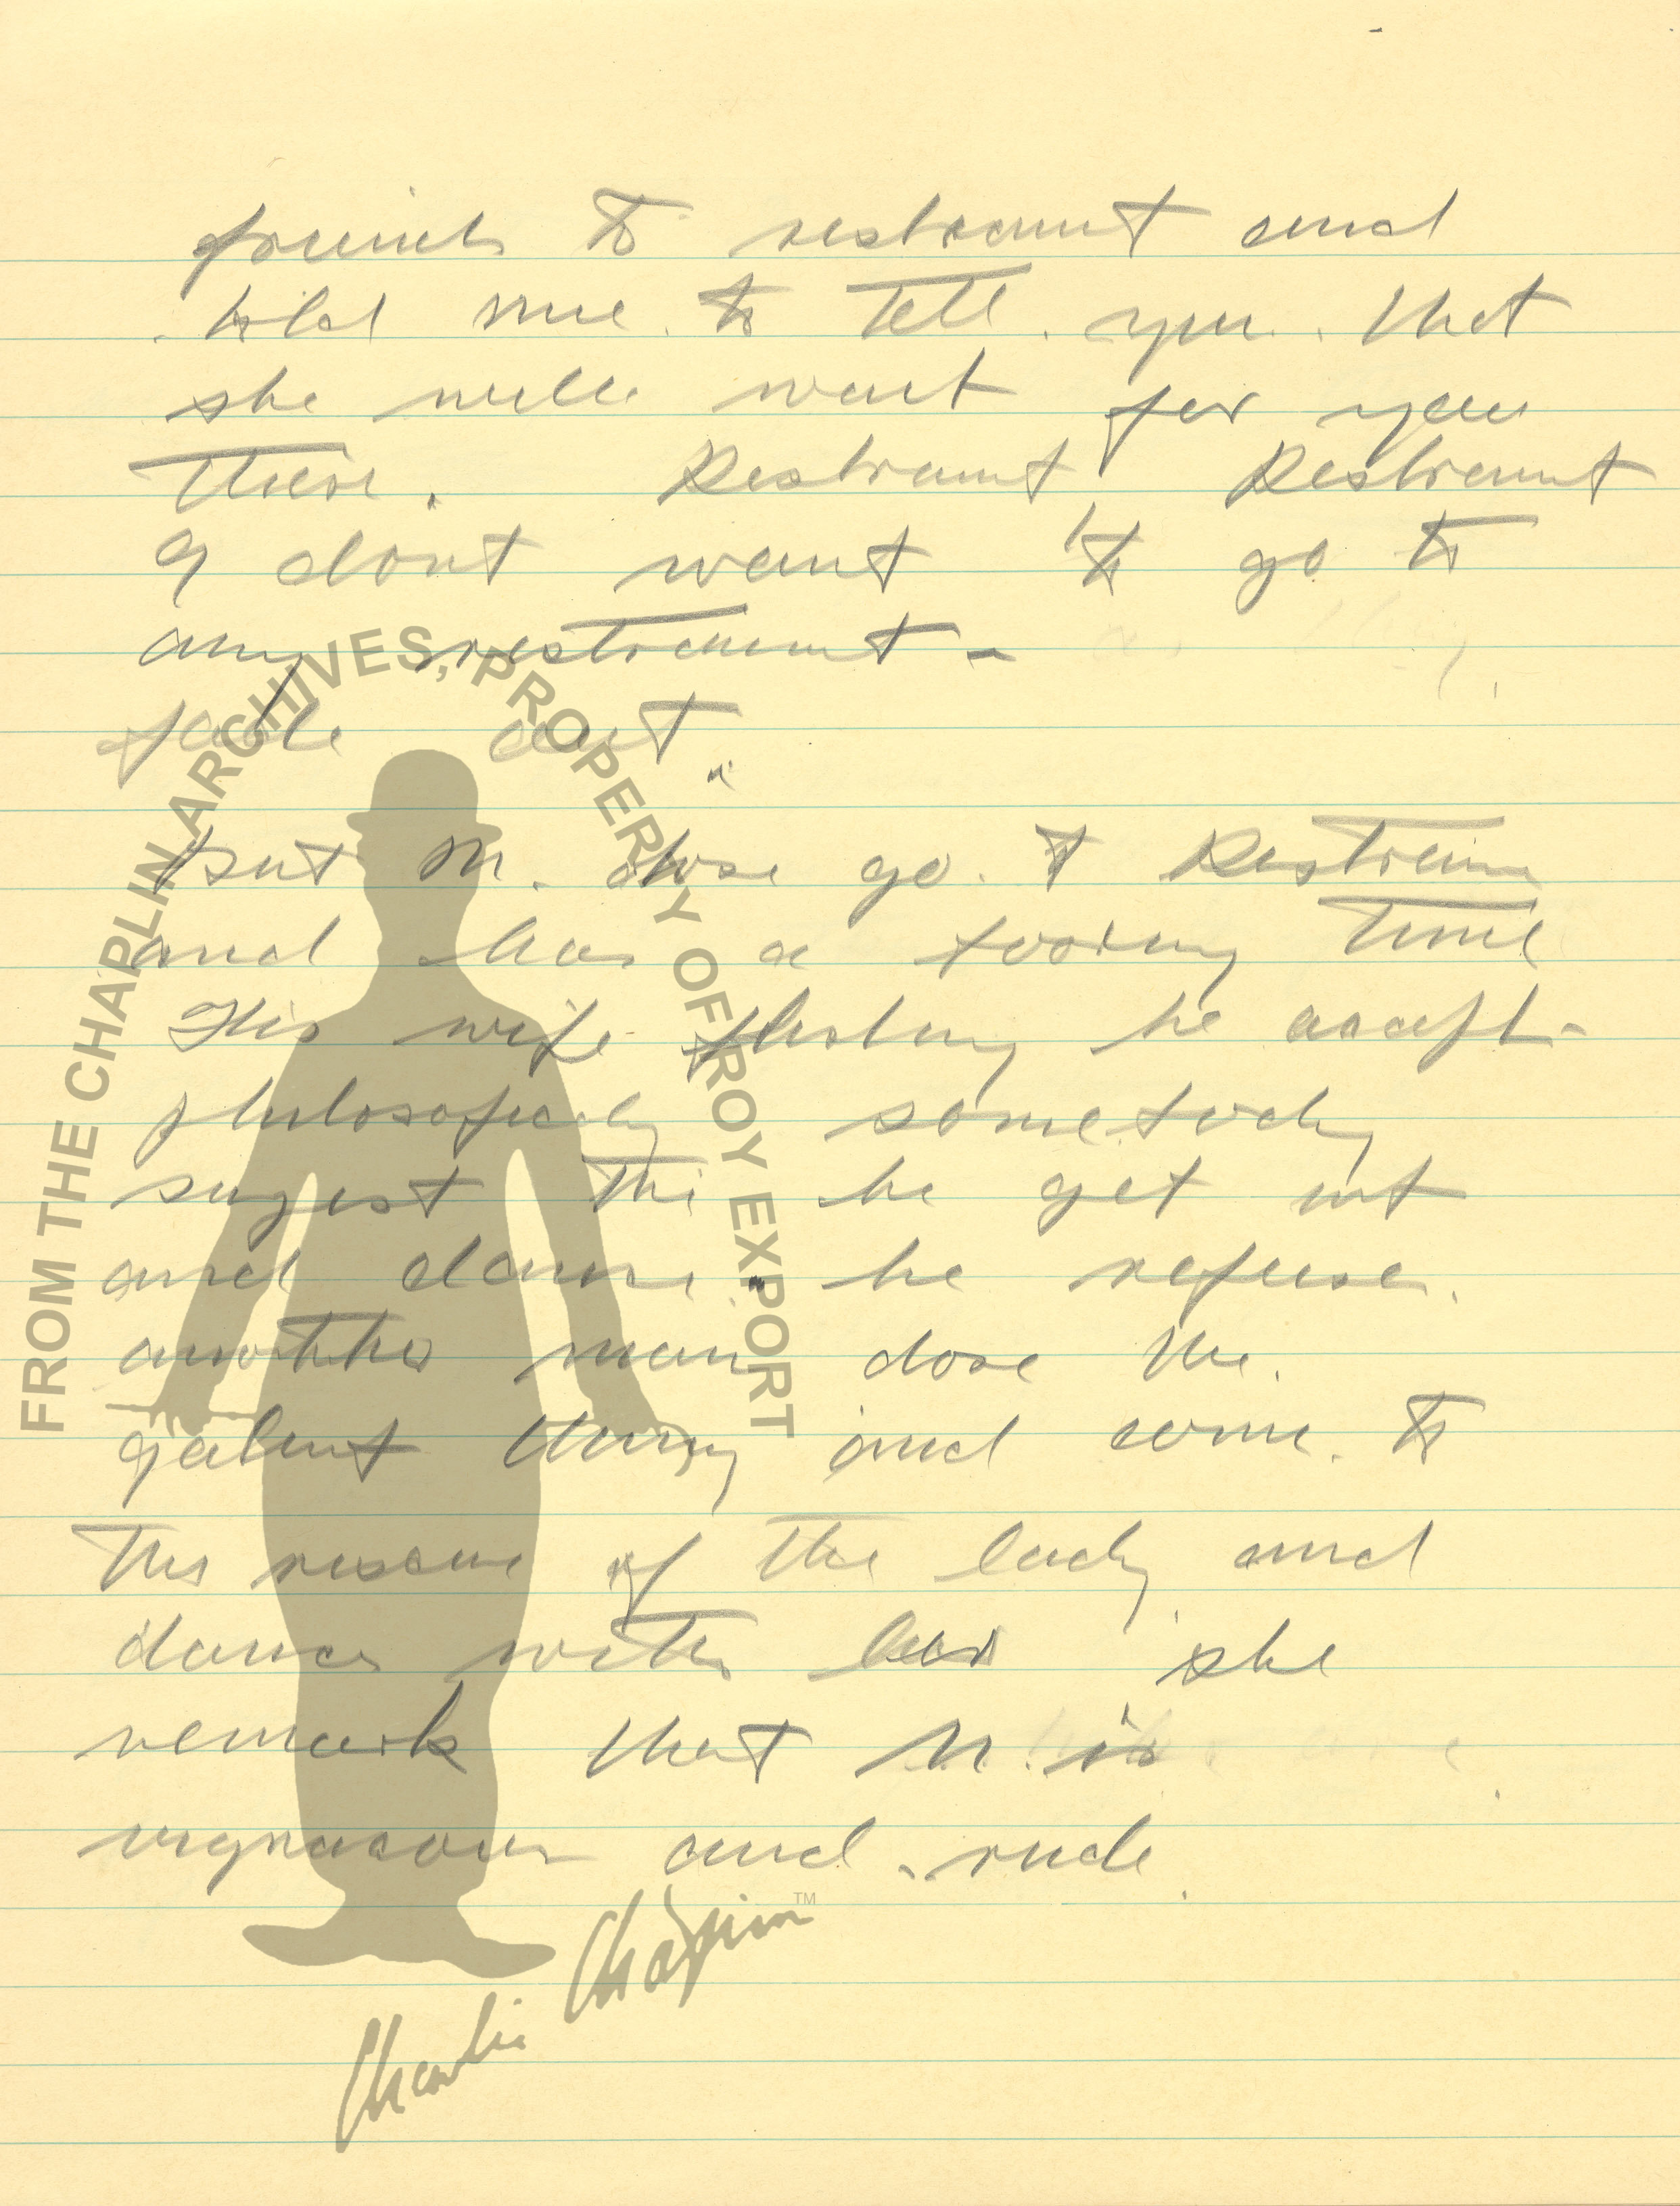 friends to restraunt and
told me to tell you that
she will wait for you
there. Restraunt Restraunt
I dont want to go to
any restraunt -
fade out
But M. dose go to Restraun
and has a boring time
His wife flirting he accept
philosofically somebody
sugest that he get out
and dance he refuse.
another man dose the
galent thing and come to
the rescue of the lady and
dances with her she
remark that M. is
ungracous and rude
FROM THE CHAPLIN ARCHIVES, PROPERTY OF ROY EXPORT
Charlie Chaplin™